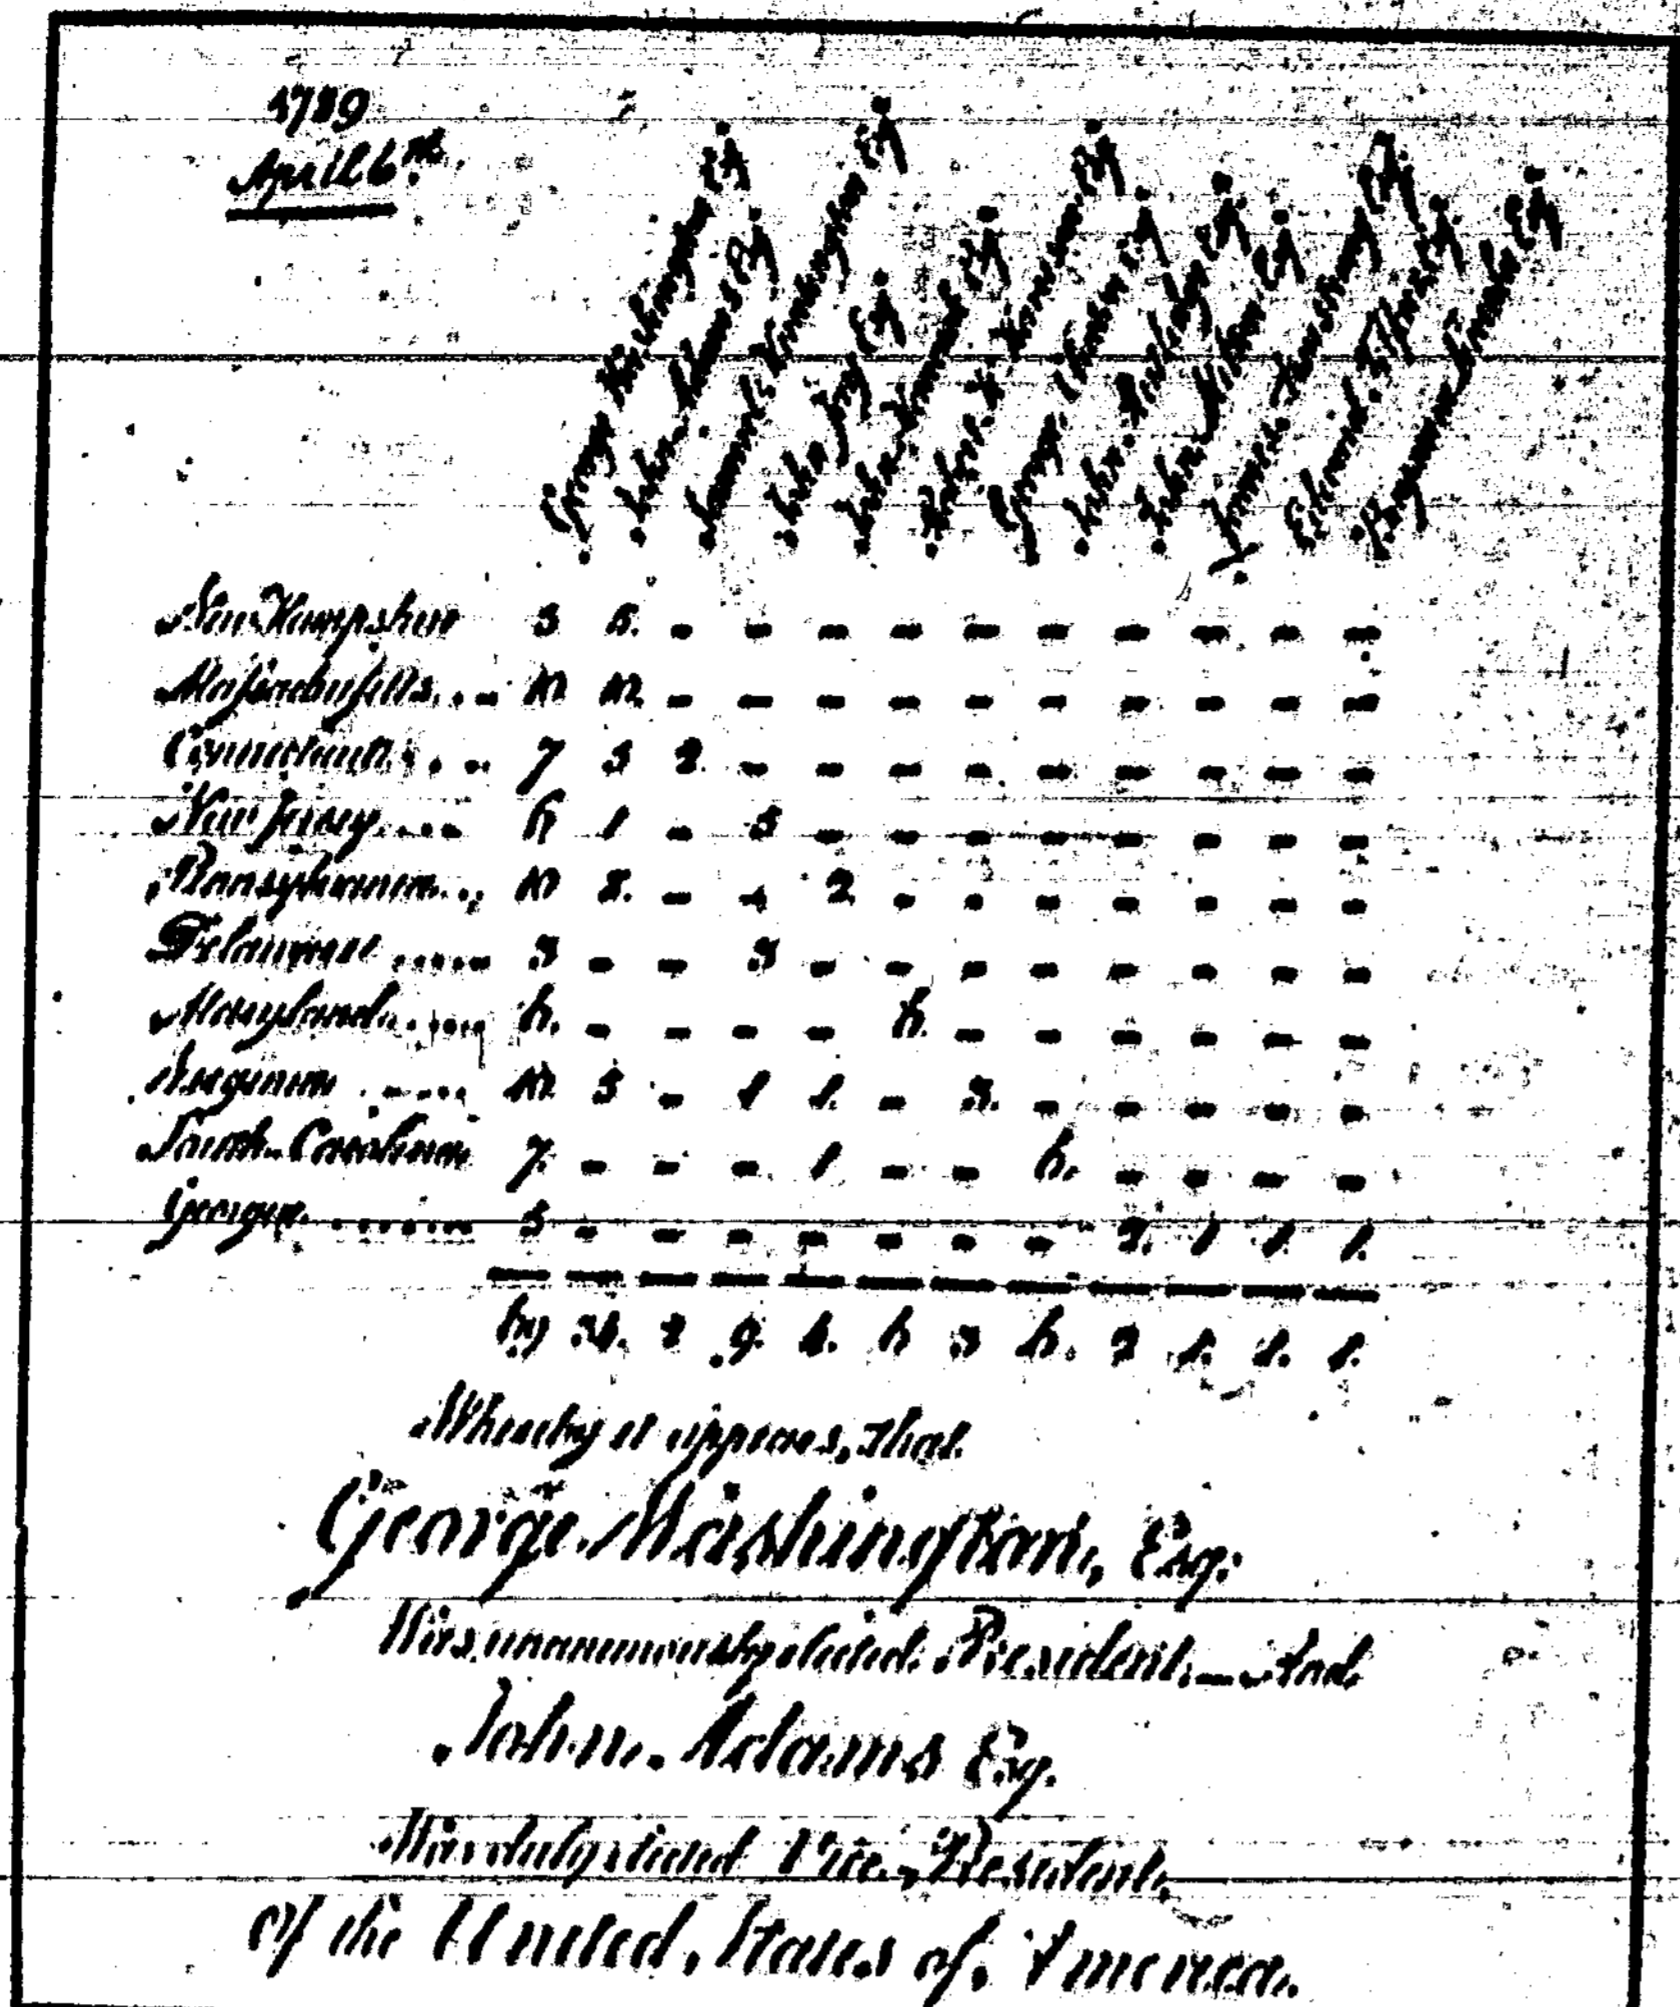 1789
April 6th.
George Washington Esqr
John Adams Esqr
Samuel Huntington Esqr
John Jay Esqr
John Hancock Esqr
Robert H. Harrison Esqr
George Clinton Esqr
John Rutledge Esqr
John Milton Esqr
James Armstrong Esqr
Edward Telfair Esqr
Benjamin Lincoln Esqr
New Hampshire 5 5. - - - - - - - - - -
Massachusetts... 10 10. - - - - - - - - - -
Connecticut.... 7 5 2. - - - - - - - - -
New Jersey.... 6 1 - 5 - - - - - - - -
Pennsylvania... 10 8. - - 2. - - - - - - -
Delaware ..... 3 - - 3 - - - - - - - -
Maryland..... 6. - - - - 6. - - - - - -
Virginia ..... 10. 5 - 1 1. - 3. - - - - -
South Carolina 7. - - - 1 - - 6. - - - -
Georgia....... 5 - - - - - - - 2. 1 1. 1.
69 34. 2 9. 4. 6 3 6. 2 1. 1. 1.
Whereby it appears, that
George Washington, Esq:
Was unanimously elected President,—And
John Adams Esq.
Was duly elected Vice-President,
Of the United States of America.